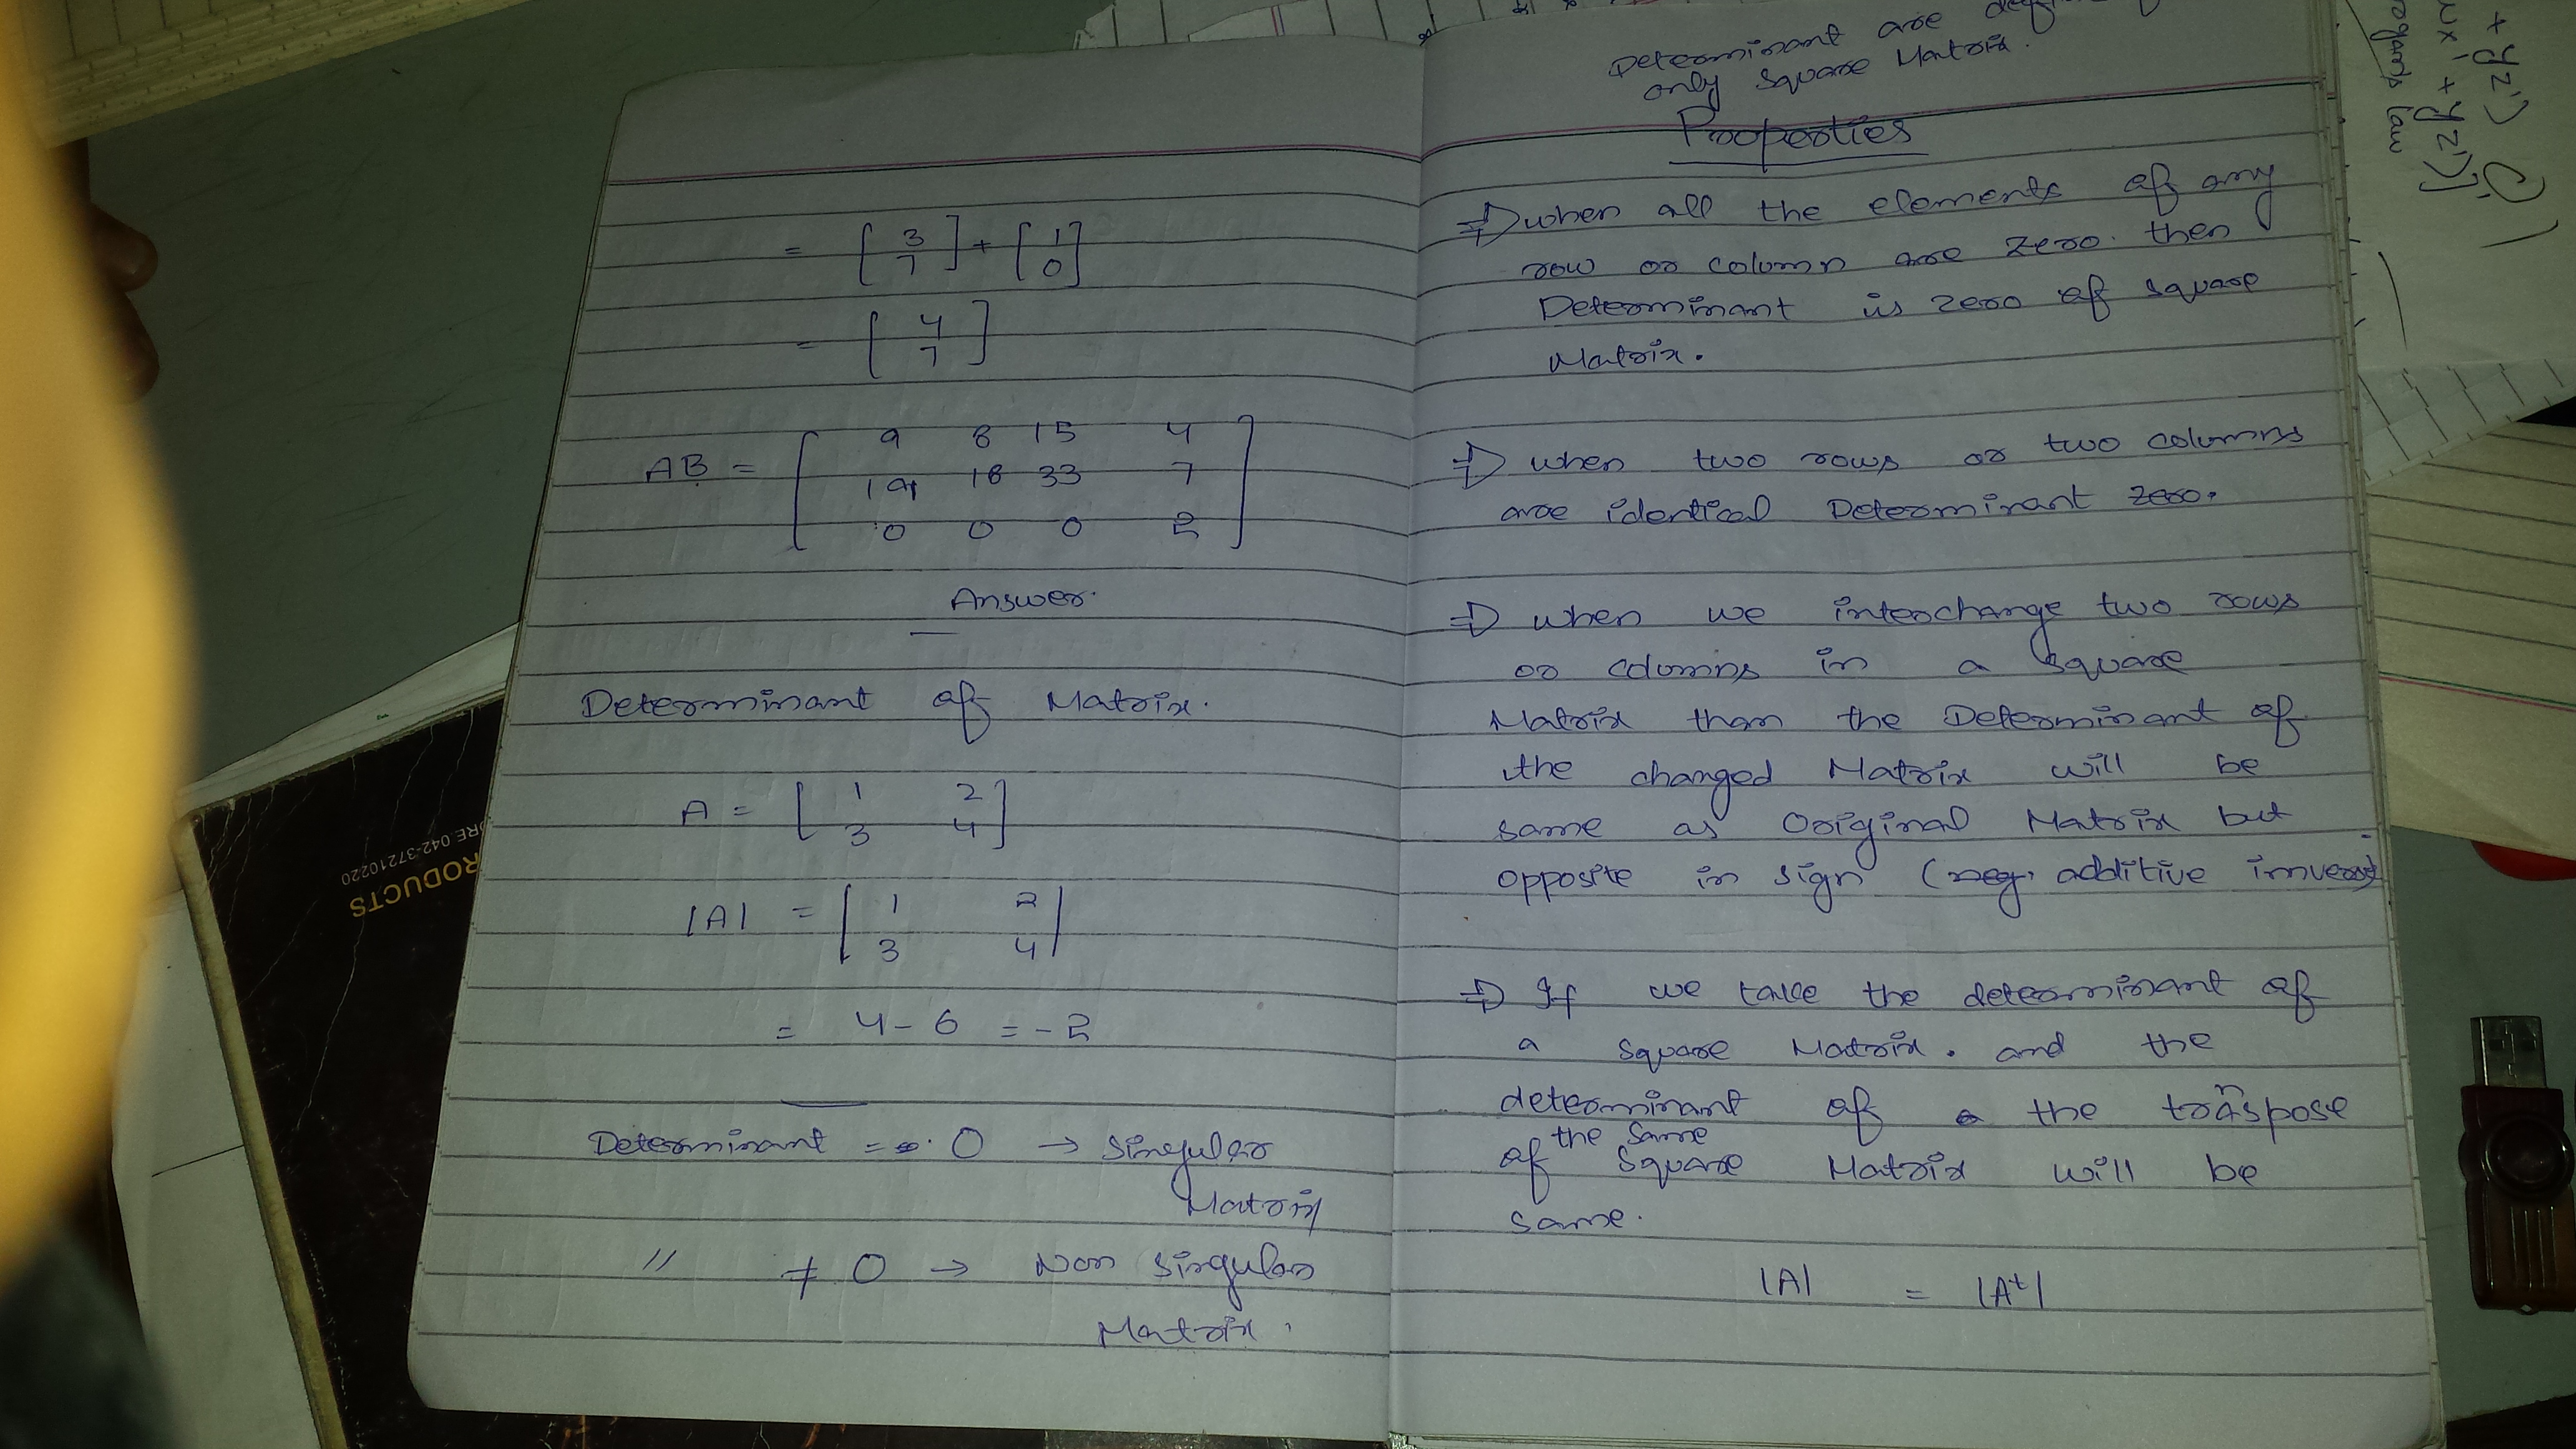 = [ 3 ] + [ 1 ]
7 0
= [ 4 ]
7
AB = [ 9 8 15 4 ]
19 18 33 7
0 0 0 2
Answer.
Determinant of Matrix.
A = [ 1 2 ]
3 4
|A| = | 1 2 |
3 4
= 4 - 6 = -2
Determinant = 0 → Singular
Matrix
// ≠ 0 → Non Singular
Matrix.
Determinant are
only Square Matrix.
Properties
⇒ when all the elements of any
row or column are zero. then
Determinant is zero of square
Matrix.
⇒ when two rows or two columns
are identical Determinant zero.
⇒ when we interchange two rows
or columns in a square
Matrix than the Determinant of
the changed Matrix will be
same as Original Matrix but
opposite in sign ( additive inverse)
⇒ If we take the determinant of
a square Matrix. and the
determinant of the transpose
of the same square Matrix will be
same.
|A| = |Aᵗ|
+ yz')
wx' + yz')]
rogans law
RODUCTS
ORE 042-37210220